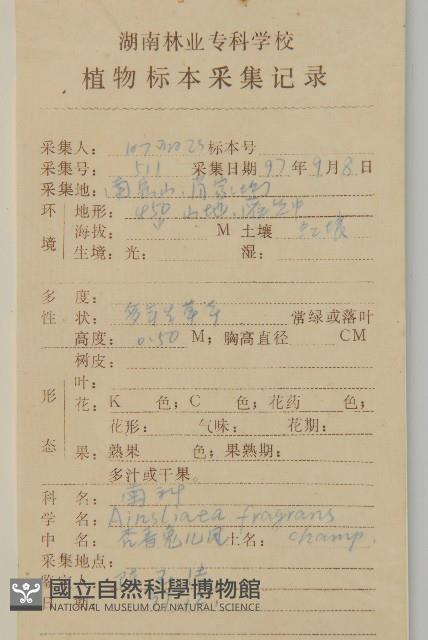 湖南林业专科学校
植物标本采集记录
采集人: 标本号
采集号: 511 采集日期 97年9月8日
采集地: 南岳山
环境 地形: 山地
海拔: 450 M 土壤 红壤
生境: 光: 湿:
多度:
性状: 多年生草本 常绿或落叶
高度: 0.50 M; 胸高直径 CM
树皮:
形态 叶:
花: K 色; C 色; 花药 色;
花形: 气味: 花期:
果: 熟果 色; 果熟期:
多汁或干果。
科名: 菊科
学名: Ainsliaea fragrans
中名: 杏香兔儿风 土名: champ.
采集地点:
國立自然科學博物館
NATIONAL MUSEUM OF NATURAL SCIENCE